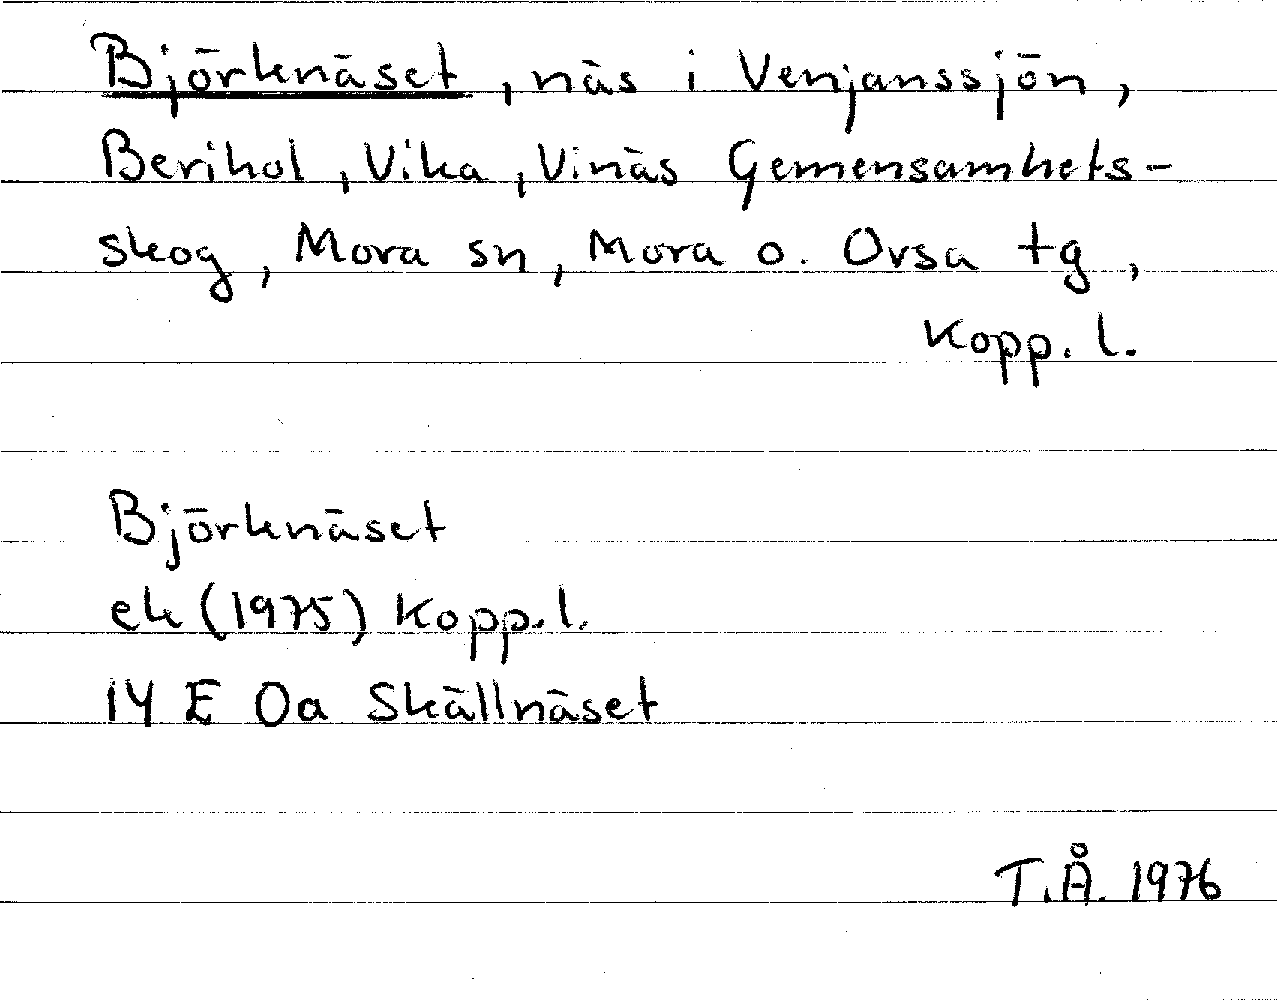 Björknäset, näs i Venjanssjön,
Berihol, Vika, Vinäs Gemensamhets-
skog, Mora sn, Mora o. Orsa tg,
Kopp. l.
Björknäset
ek (1975) Kopp. l.
14 E 0a Skällnäset
T.Å. 1976